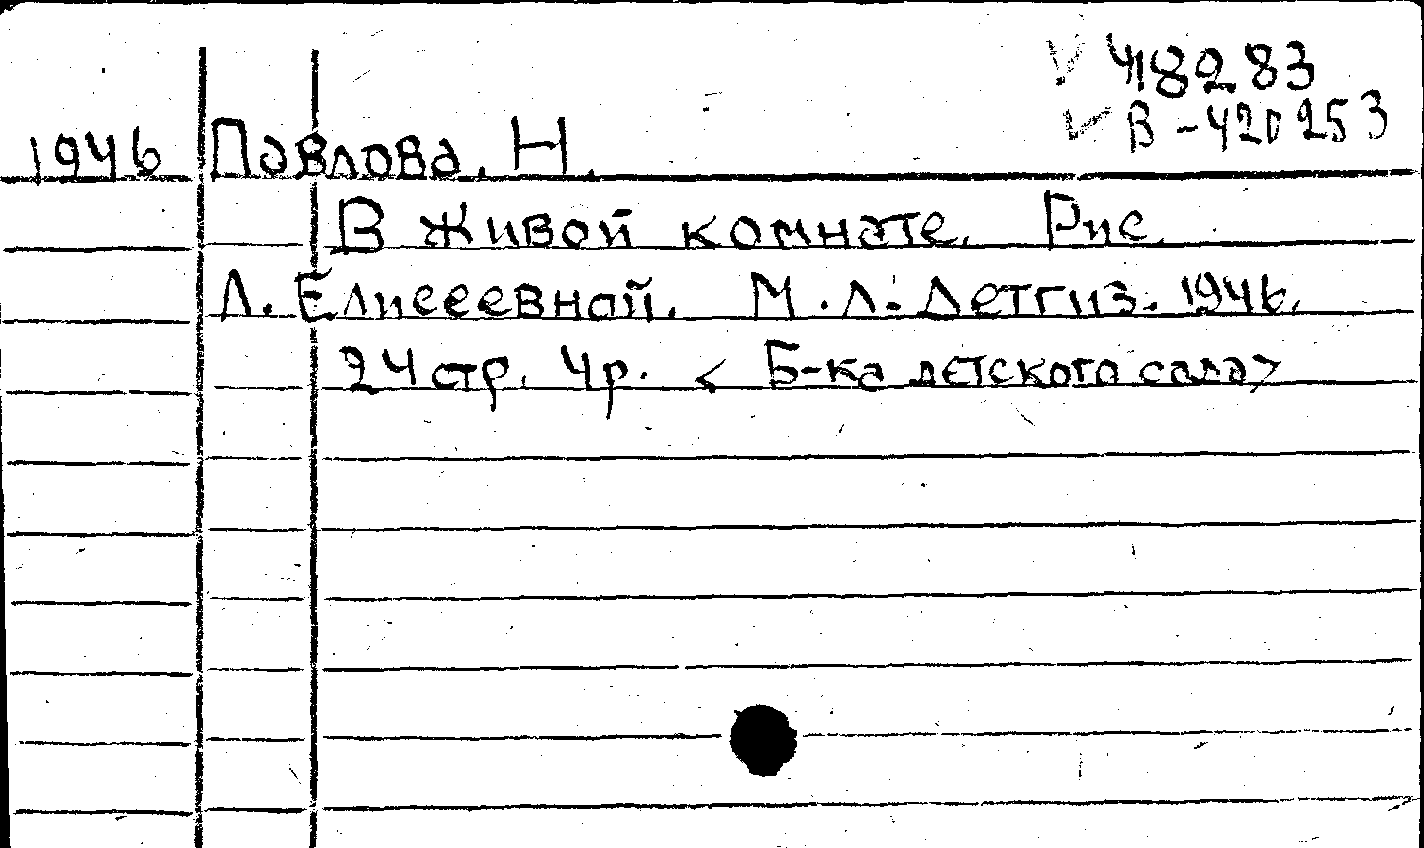 418283
В-420253
1946 Павлова. Н.
В живой комнате. Рис.
Л. Елисеевной. М.Л. Детгиз. 1946.
24 стр. 4р. < Б-ка детского сада>